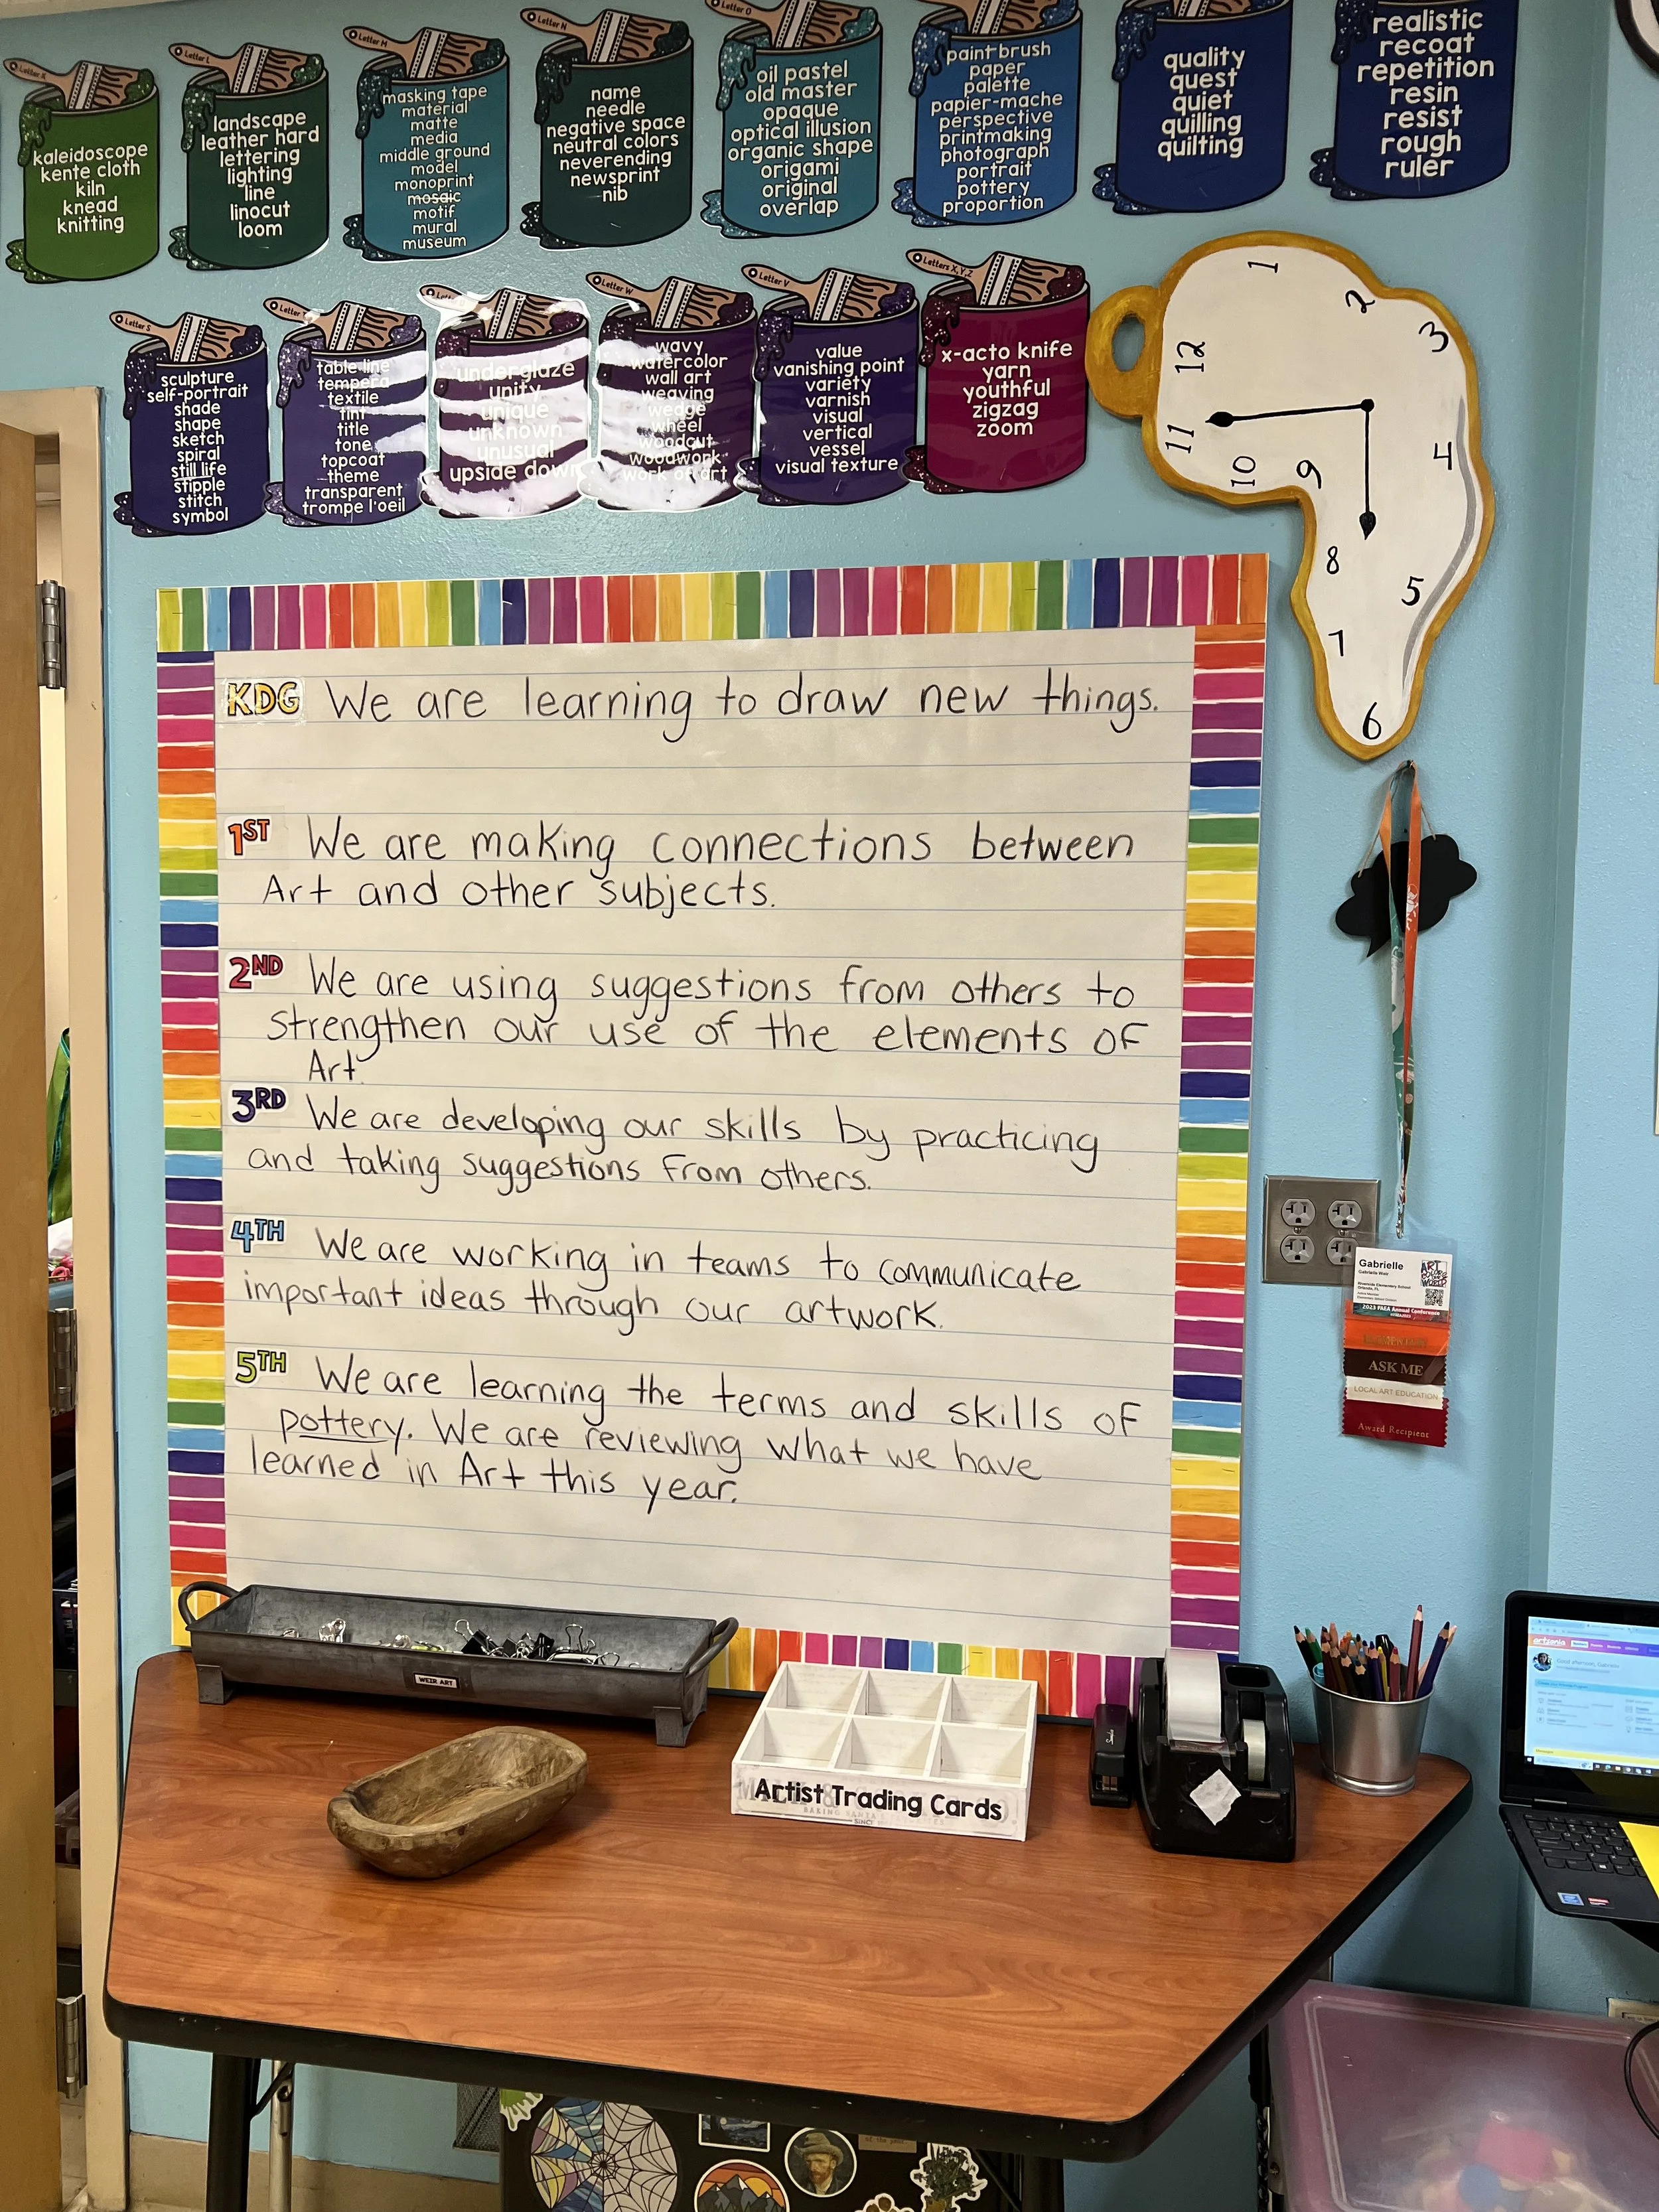 Letter K
kaleidoscope
kente cloth
kiln
knead
knitting
Letter L
landscape
leather hard
lettering
lighting
line
linocut
loom
Letter M
masking tape
material
matte
media
middle ground
model
monoprint
mosaic
motif
mural
museum
Letter N
name
needle
negative space
neutral colors
neverending
newsprint
nib
Letter O
oil pastel
old master
opaque
optical illusion
organic shape
origami
original
overlap
paint brush
paper
palette
papier-mache
perspective
printmaking
photograph
portrait
pottery
proportion
quality
quest
quiet
quilling
quilting
realistic
recoat
repetition
resin
resist
rough
ruler
Letter S
sculpture
self-portrait
shade
shape
sketch
spiral
still life
stipple
stitch
symbol
Letter
table line
tempera
textile
tint
title
tone
topcoat
theme
transparent
trompe l'oeil
underglaze
unity
unique
unknown
unusual
upside down
Letter W
wavy
watercolor
wall art
weaving
wedge
wheel
woodcut
woodwork
work of art
Letter V
value
vanishing point
variety
varnish
visual
vertical
vessel
visual texture
Letters X,Y,Z
x-acto knife
yarn
youthful
zigzag
zoom
1
2
3
12
11
10
9
4
8
5
7
6
KDG We are learning to draw new things.
1ST We are making connections between
Art and other subjects.
2ND We are using suggestions from others to
strengthen our use of the elements of
Art.
3RD We are developing our skills by practicing
and taking suggestions from others.
4TH We are working in teams to communicate
important ideas through our artwork.
5TH We are learning the terms and skills of
pottery. We are reviewing what we have
learned in Art this year.
Gabrielle
Gabrielle Weir
Riverside Elementary School
Orlando, FL
2023 FAEA Annual Conference
ASK ME
LOCAL ART EDUCATION
Award Recipient
WEIR ART
Artist Trading Cards
BAKING
artsonia
Good afternoon, Gabrielle